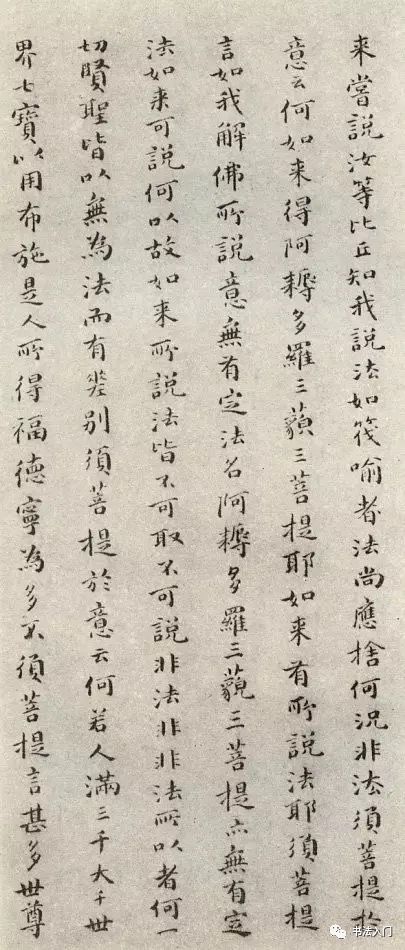 来嘗説汝等比丘知我説法如筏喻者法尚應捨何況非法須菩提於
意云何如来得阿耨多羅三藐三菩提耶如来有所説法耶須菩提
言如我解佛所説意無有定法名阿耨多羅三藐三菩提亦無有定
法如来可説何以故如来所説法皆不可取不可説非法非非法所以者何一
切賢聖皆以無為法而有差别須菩提於意云何若人滿三千大千世
界七寶以用布施是人所得福德寧為多不須菩提言甚多世尊
书法入门